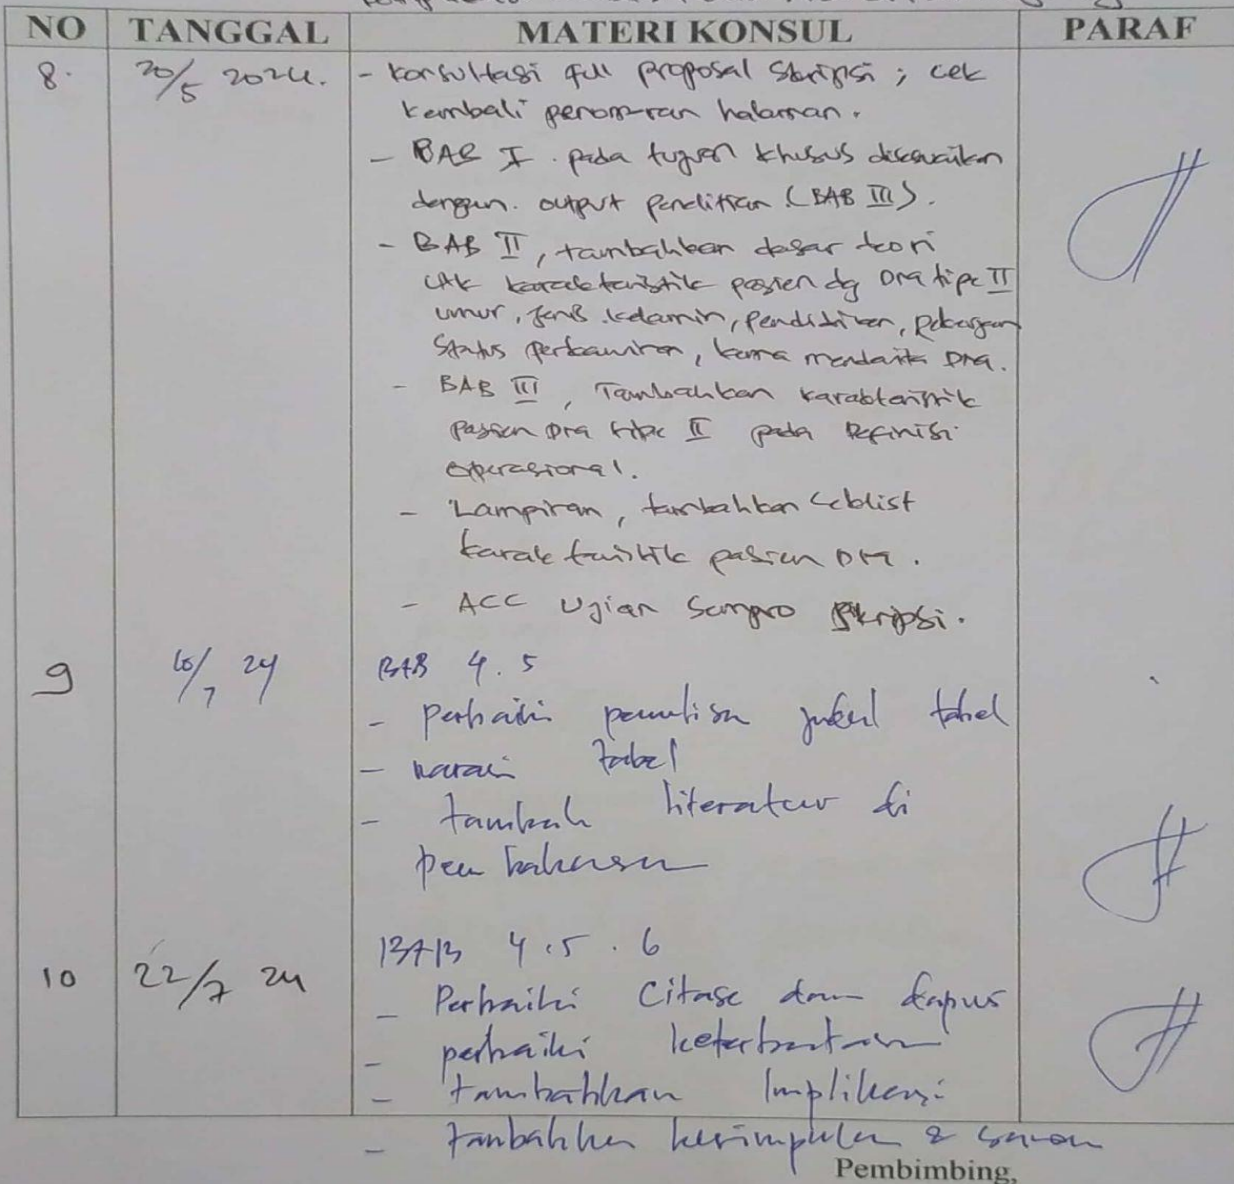 NO TANGGAL MATERI KONSUL PARAF
8. 20/5 2024. - konsultasi full proposal skripsi ; cek
kembali penomoran halaman.
- BAB I. pada tujuan khusus disesuaikan
dengan. output penelitian (BAB III).
- BAB II, tambahkan dasar teori
utk karakteristik pasien dg DM tipe II
umur, jenis kelamin, pendidikan, pekerjaan
status perkawinan, lama menderita DM.
- BAB III, Tambahkan karakteristik
pasien DM tipe II pada Definisi
operasional.
- Lampiran, tambahkan ceklist
karakteristik pasien DM.
- ACC Ujian Sempro Skripsi.
9 /7 24 BAB 4.5
- perbaiki penulisan judul tabel
- narasi tabel
- tambah literatur di
pembahasan
10 22/7 24 BAB 4.5.6
- Perbaiki Citasi dan dapus
- perbaiki keterbatasan
- tambahkan Implikasi
- tambahkan kesimpulan & saran
Pembimbing,